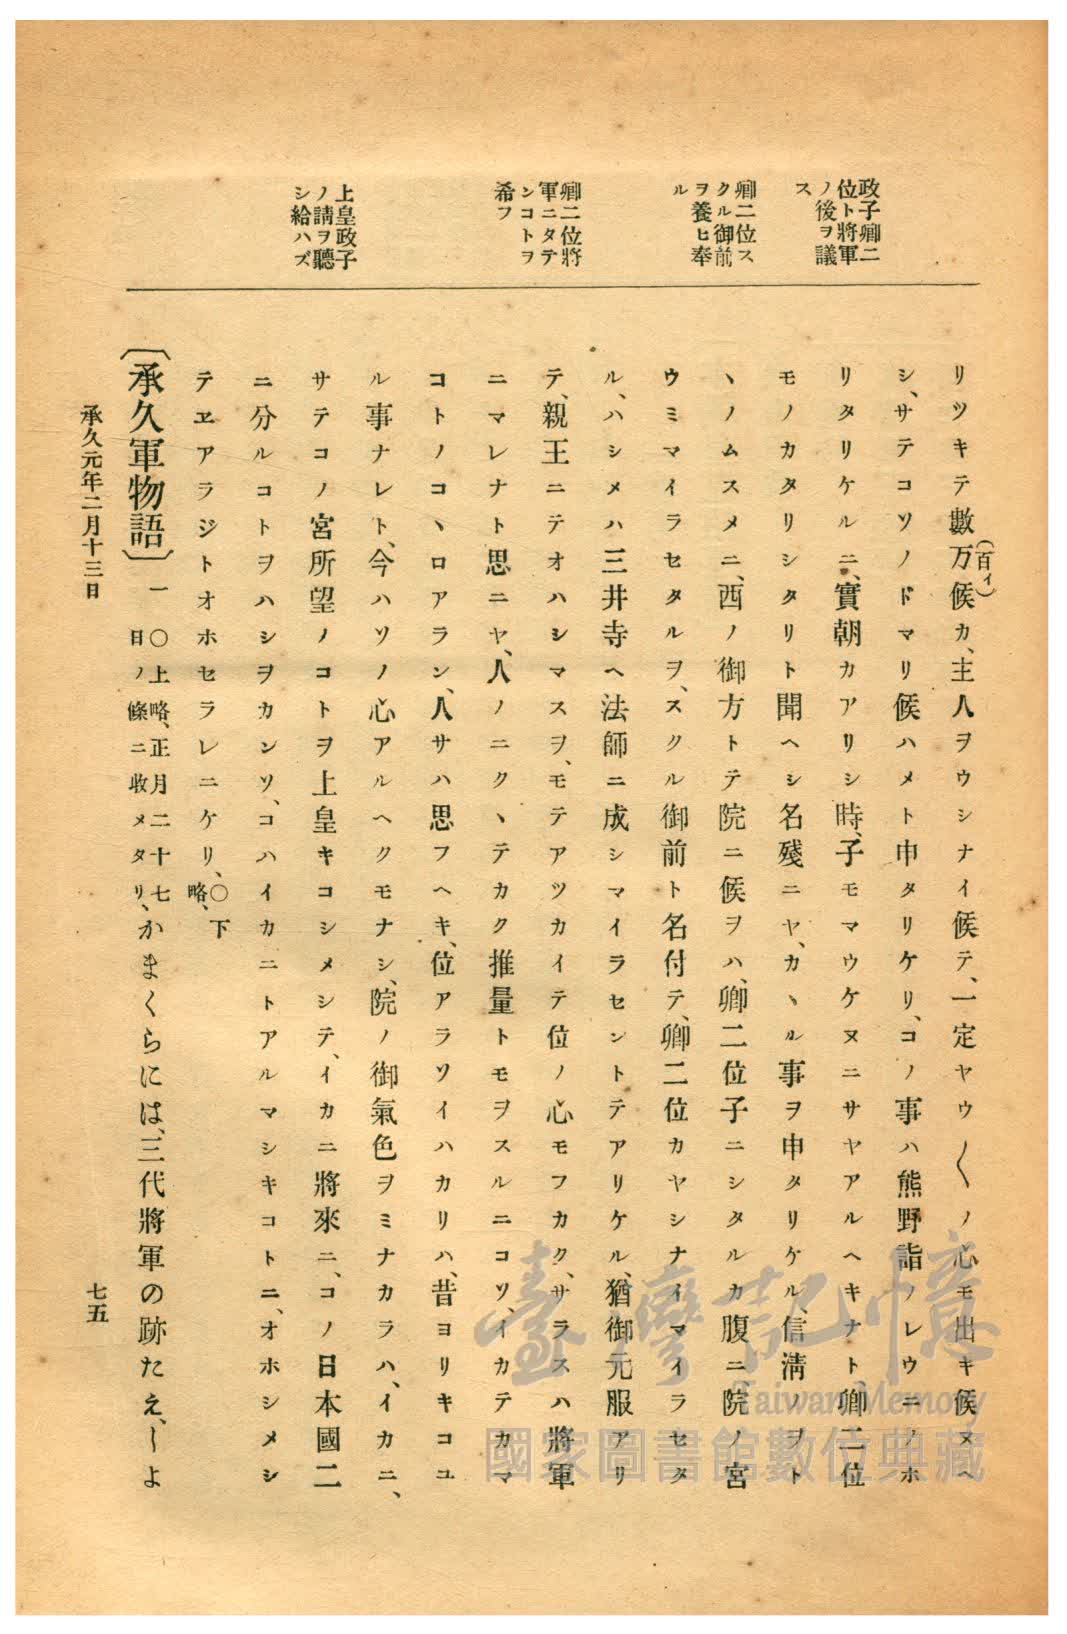 政子卿二
位ト將軍
ノ後ヲ議
ス
卿二位ス
クル御前
ヲ養ヒ奉
ル
卿二位將
軍ニタテ
ンコトヲ
希フ
上皇政子
ノ請ヲ聽
シ給ハズ
リツキテ數万(百イ)候カ、主人ヲウシナイ候テ、一定ヤウ〳〵ノ心モ出キ候ヌヘ
シ、サテコソノドマリ候ハメト申タリケリ、コノ事ハ熊野詣ノレウニノホ
リタリケルニ、實朝カアリシ時、子モマウケヌニサヤアルヘキナト、卿二位
モノカタリシタリト聞ヘシ名殘ニヤ、カヽル事ヲ申タリケル、信淸ノヲト
ヽノムスメニ、西ノ御方トテ院ニ候ヲハ、卿二位子ニシタルカ腹ニ、院ノ宮
ウミマイラセタルヲ、スクル御前ト名付テ、卿二位カヤシナイマイラセタ
ル、ハシメハ三井寺ヘ法師ニ成シマイラセントテアリケル、猶御元服アリ
テ、親王ニテオハシマスヲ、モテアツカイテ位ノ心モフカク、サラスハ將軍
ニマレナト思ニヤ、人ノニクヽテカク推量トモヲスルニコソ、イカテカマ
コトノコヽロアラン、人サハ思フヘキ、位アラソイハカリハ、昔ヨリキコユ
ル事ナレト、今ハソノ心アルヘクモナシ、院ノ御氣色ヲミナカラハ、イカニ、
サテコノ宮所望ノコトヲ上皇キコシメシテ、イカニ將來ニ、コノ日本國二
ニ分ルコトヲハシヲカンソ、コハイカニトアルマシキコトニ、オホシメシ
テヱアラジトオホセラレニケリ、〇下略、
〔承久軍物語〕一 〇上略、正月二十七日ノ條ニ收メタリ、かまくらには、三代將軍の跡たえ、しよ
承久元年二月十三日
七五
臺灣記憶
Taiwan Memory
國家圖書館數位典藏